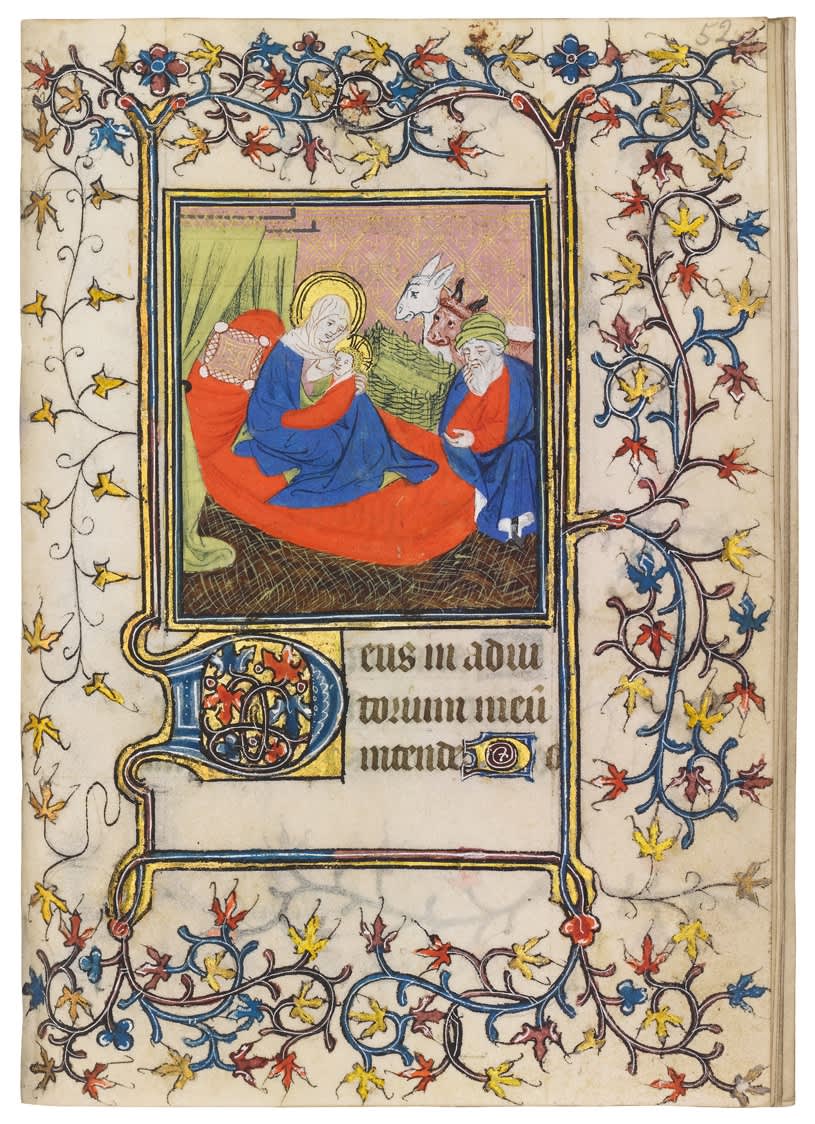 52
Deus in adiu
torium meū
intende D